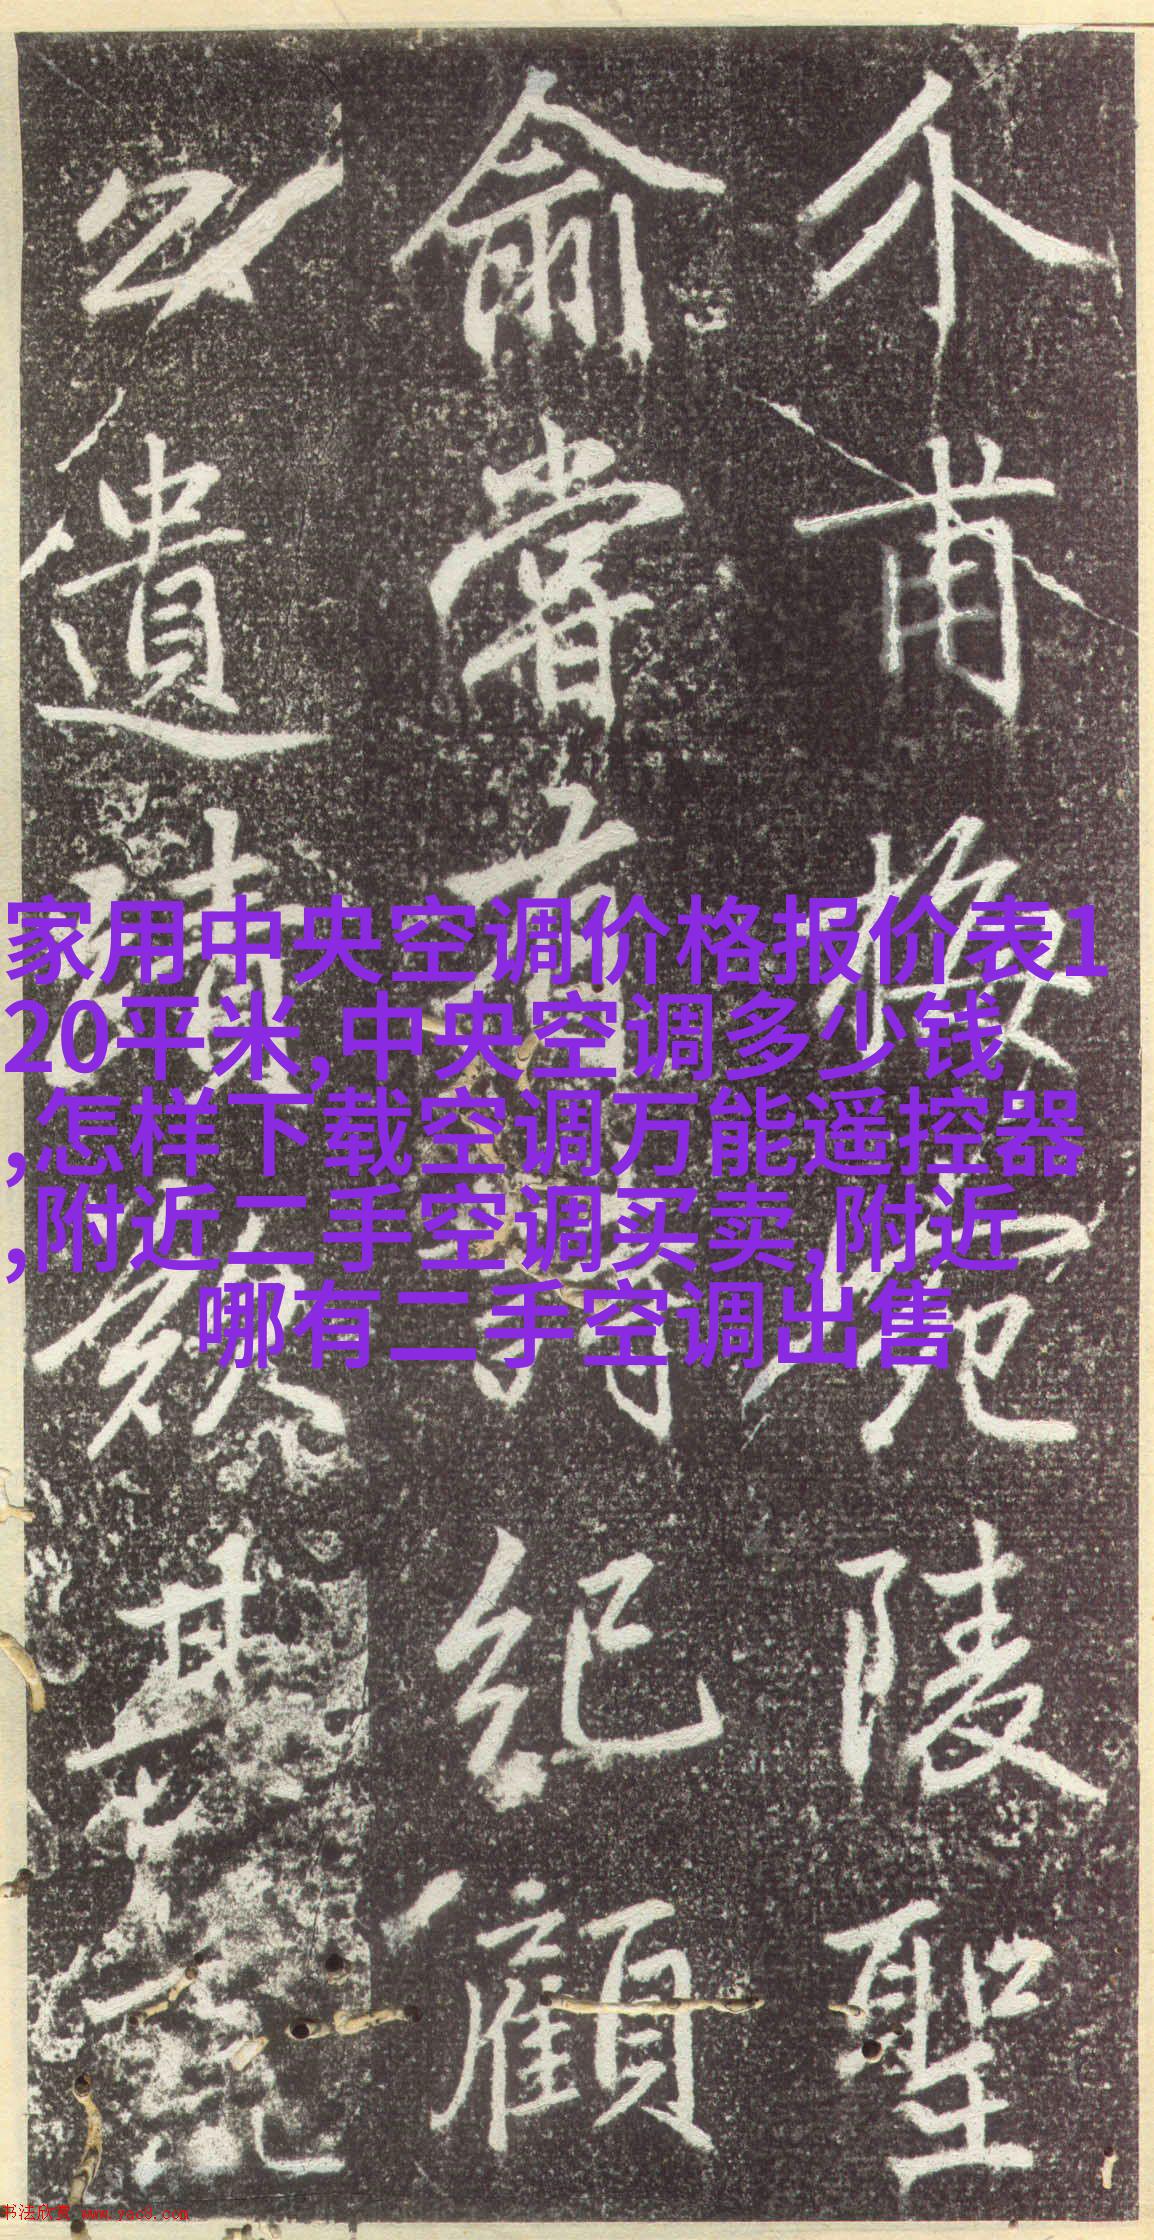 介甫梅宛陵聖
俞嘗有詩紀顧
公遺蹟後其
家用中央空调价格报价表1
20平米,中央空调多少钱
,怎样下载空调万能遥控器
,附近二手空调买卖,附近
哪有二手空调出售
书法欣赏 www.yac8.com